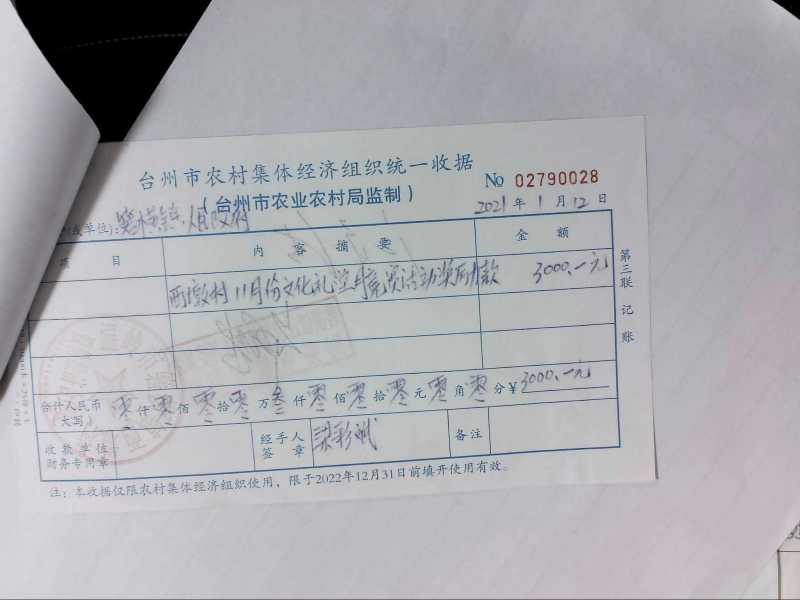 台州市农村集体经济组织统一收据
(台州市农业农村局监制)
No 02790028
2021年1月12日
单位):
项目 内容摘要 金额
11月份文化礼堂月竞赛活动奖励款 3000.—元
合计人民币(大写) 零仟零佰零拾零万叁仟零佰零拾零元零角零分 ¥3000.—元
收款单位财务专用章 经手人签章 梁彩斌 备注
注:本收据仅限农村集体经济组织使用,限于2022年12月31日前填开使用有效。
第三联 记账